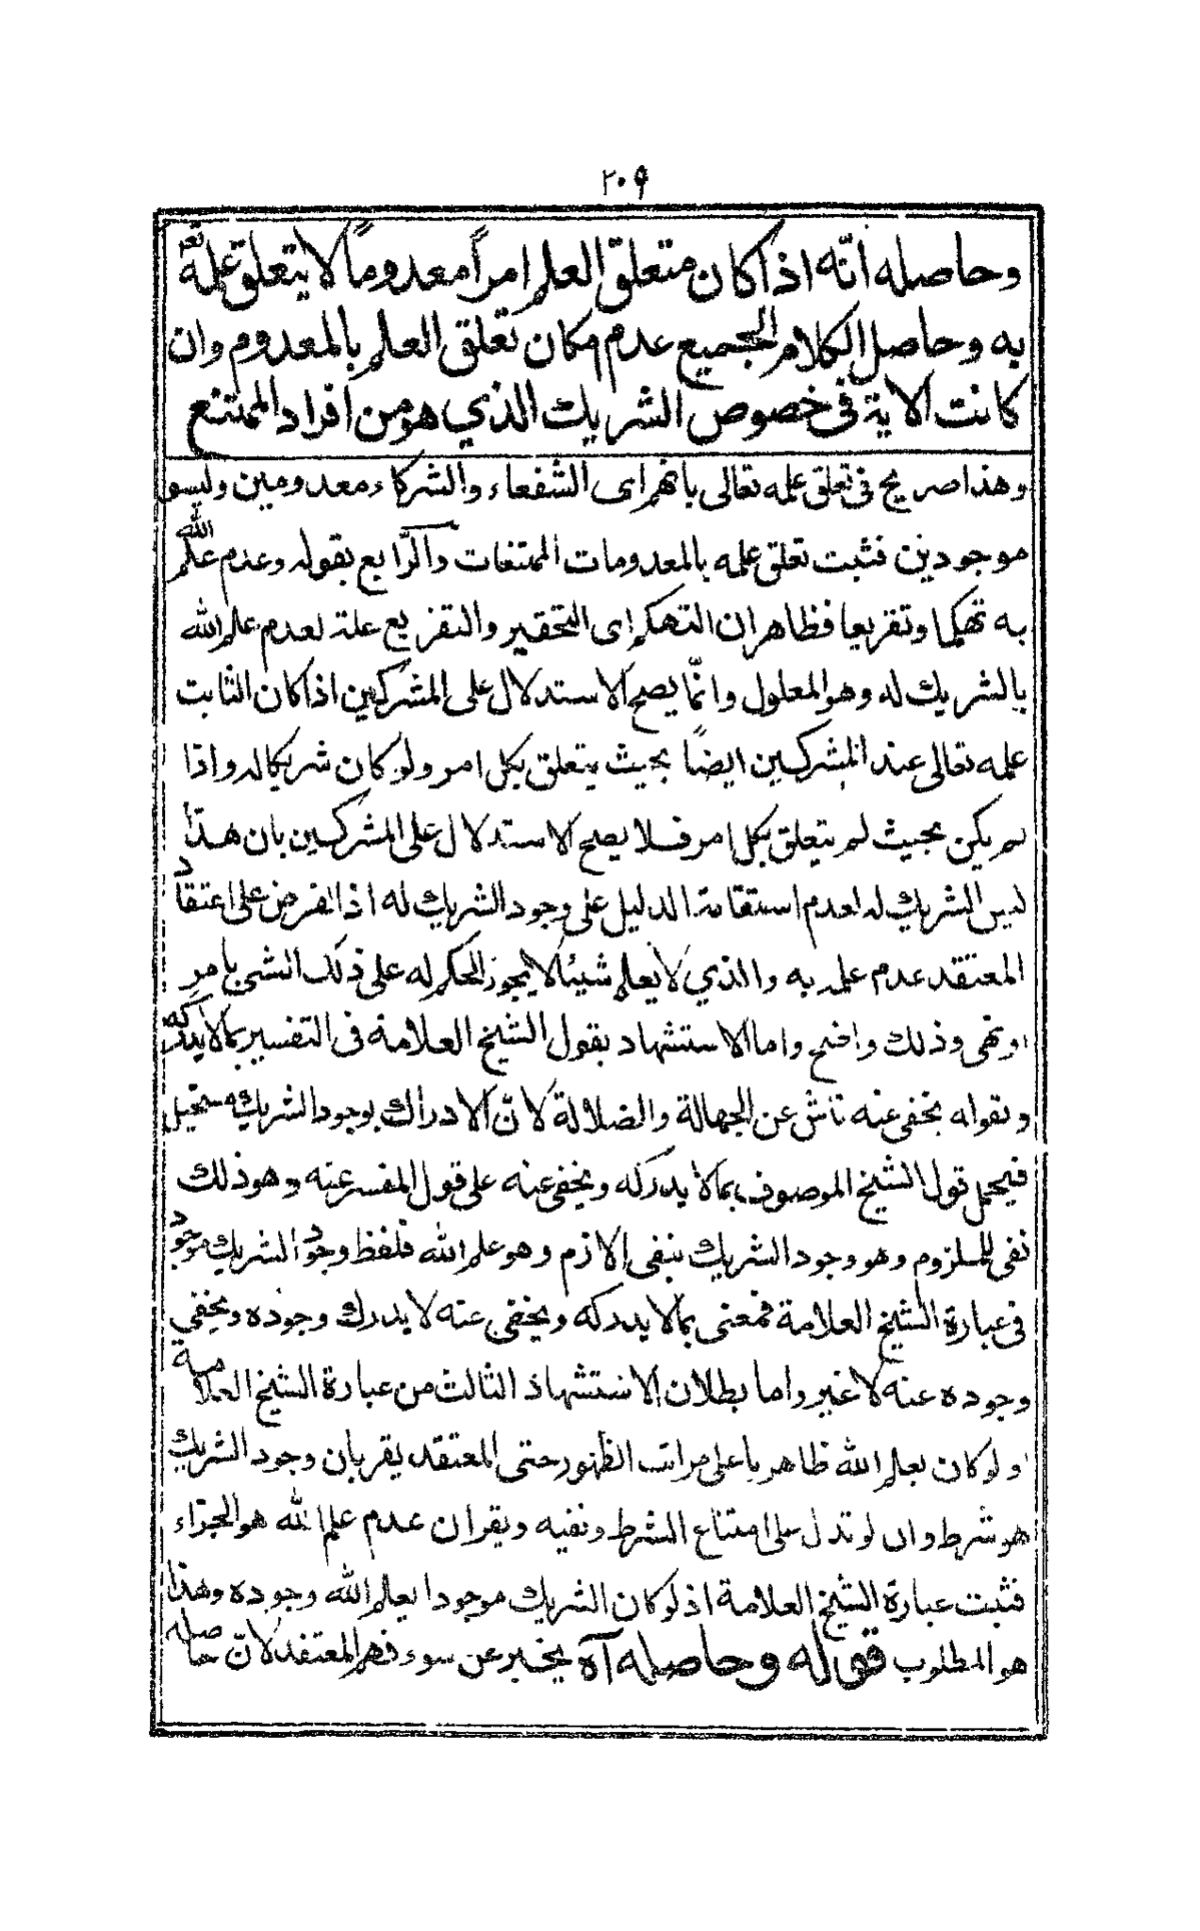 ٢٠٩
وحاصله انّه اذا كان متعلق العلم امراً معدوماً لا يتعلق علمه تعٰ
به وحاصل الكلام الجميع عدم امكان تعلق العلم بالمعدوم وان
كانت الاية فى خصوص الشريك الذي هو من افراد الممتنع
وهذا صريح فى تعلق علمه تعالى بانهم اى الشفعاء والشركاء معدومين وليسو
موجودين فثبت تعلق علمه بالمعدومات الممتنعات والرّابع بقوله وعدم علم الله
به تهكما وتقريعا فظاهر ان التهكم اى التحقير والتقريع علة لعدم علم الله
بالشريك له وهو المعلول وانّما يصح الاستدلال على المشركين اذا كان الثابت
علمه تعالى عند المشركين ايضاً بحيث يتعلق بكل امر ولو كان شريكا له واذا
لم يكن بحيث لم يتعلق بكل امر فلا يصح الاستدلال على المشركين بان هذا
ليس الشريك له لعدم استقامة الدليل على وجود الشريك له اذ الفرض على اعتقاد
المعتقد عدم علمه به والذي لا يعلم شيئا لا يجوز الحكم له على ذلك الشى بامر
او نهى وذلك واضح واما الاستشهاد بقول الشيخ العلامة فى التفسير بما لا يدركه
وبقوله يخفى عنه ناش عن الجهالة والضلالة لانّ الادراك بوجود الشريك مستحيل
فيحمل قول الشيخ الموصوف بما لا يدركه ويخفى عنه على قول المفسر عنه وهو ذلك
نفى للملزوم وهو وجود الشريك بنفى اللازم وهو علم الله فلفظ وجود الشريك موجود
فى عبارة الشيخ العلامة فمعنى بما لا يدركه ويخفى عنه لا يدرك وجوده ويخفى
وجوده عنه لا غير واما بطلان الاستشهاد الثالث من عبارة الشيخ العلامة
ولو كان يعلم الله ظاهر باعلى مراتب الظهور حتى المعتقد يقر بان وجود الشريك
هو شرط وان لو تدل على امتناع الشرط ونفيه ويقر ان عدم علم الله هو الجزاء
فثبت عبارة الشيخ العلامة اذ لو كان الشريك موجودا يعلم الله وجوده وهذا
هو المطلوب قوله وحاصله آه يخبر عن سوء فهم المعتقد لانّ حاصله